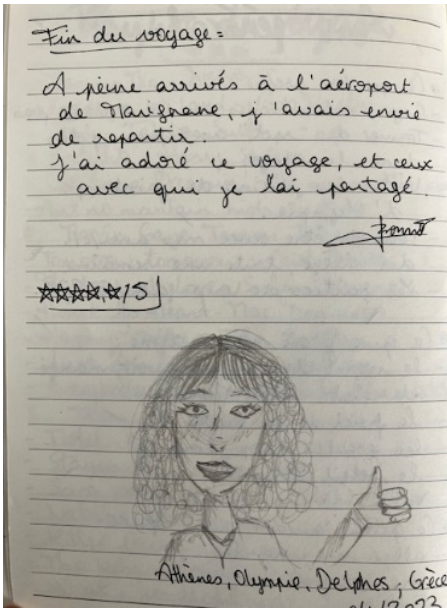 Fin du voyage :
A peine arrivés à l'aéroport
de Marignane, j'avais envie
de repartir.
J'ai adoré ce voyage, et ceux
avec qui je l'ai partagé.
☆☆☆☆☆/5
Athènes, Olympie, Delphes, Grèce